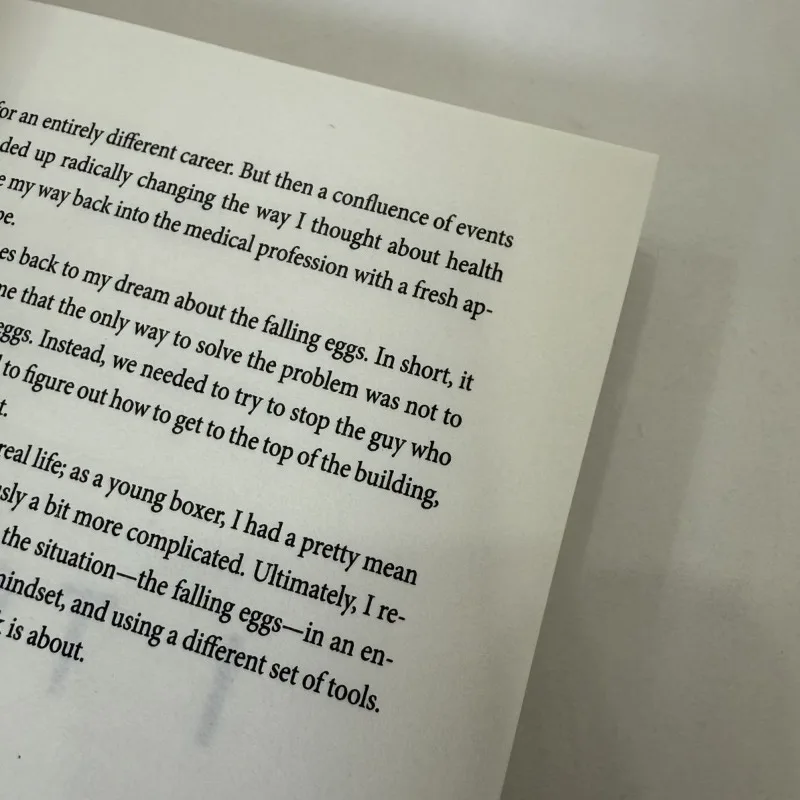 for an entirely different career. But then a confluence of events
ded up radically changing the way I thought about health
e my way back into the medical profession with a fresh ap-
pe.
es back to my dream about the falling eggs. In short, it
me that the only way to solve the problem was not to
eggs. Instead, we needed to try to stop the guy who
to figure out how to get to the top of the building,
t.
real life; as a young boxer, I had a pretty mean
usly a bit more complicated. Ultimately, I re-
the situation—the falling eggs—in an en-
mindset, and using a different set of tools.
k is about.